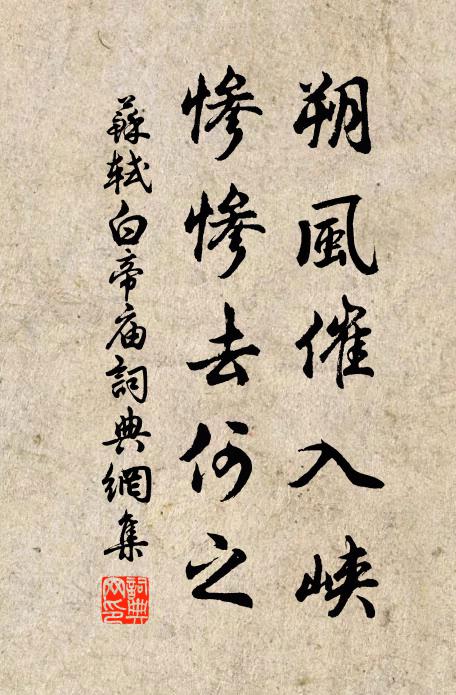 朔風催入峽
慘慘去何之
蘇軾白帝庙詞典網集
詞典网印